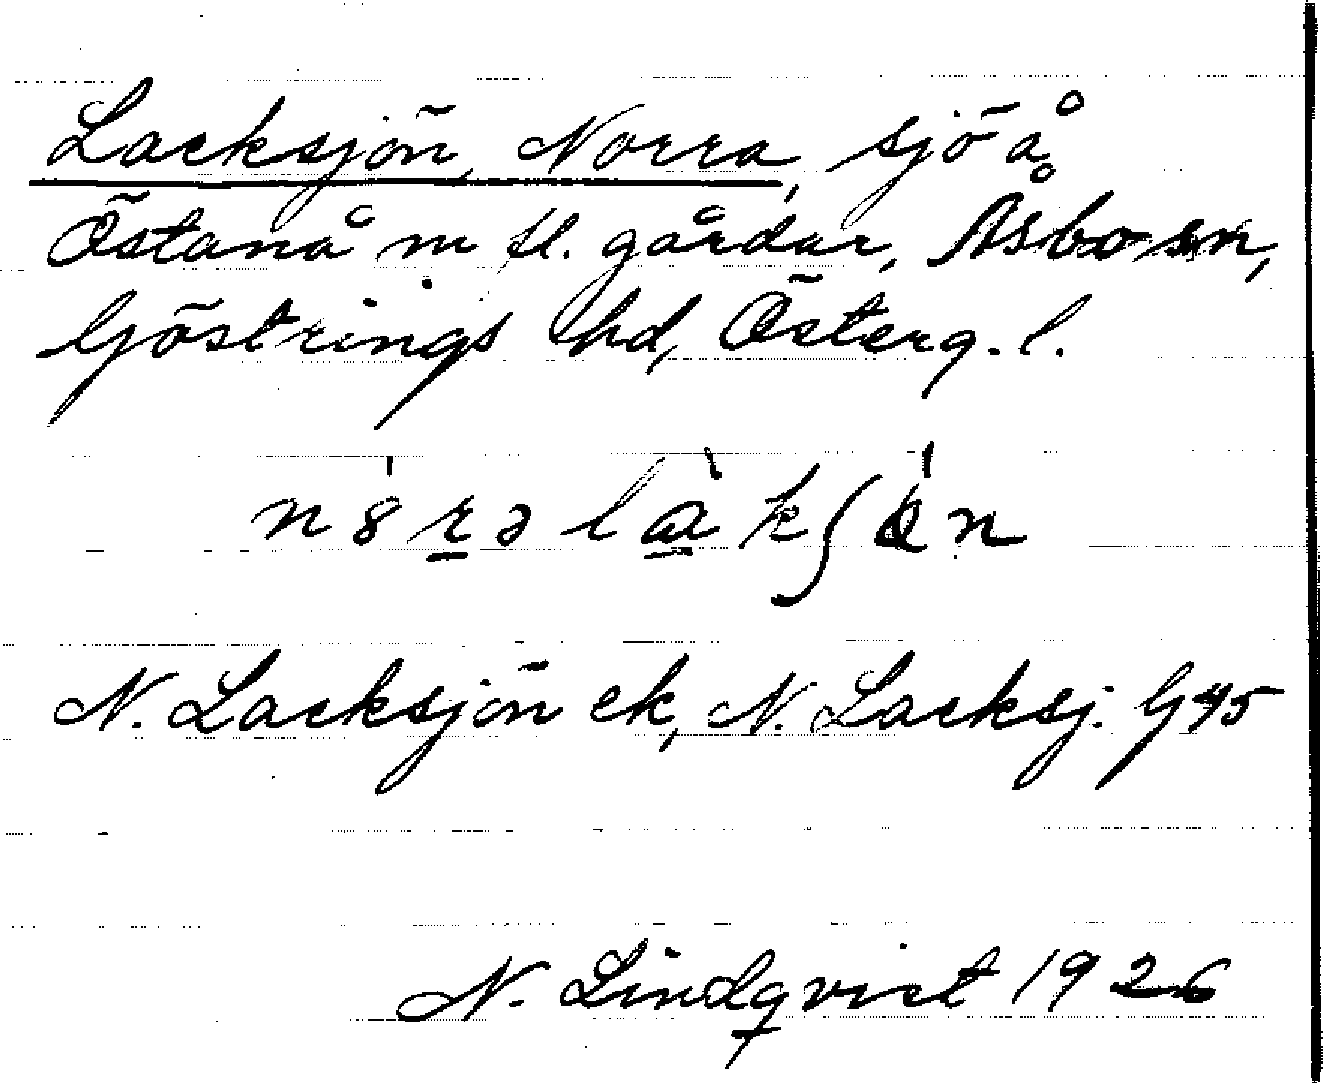 Lacksjön, Norra, sjö å
Östanå m fl. gårdar, Åsbo sn,
Göstrings hd, Österg. l.
n8rə làkʃɵ̀n
N. Lacksjön ek, N. Lacksj. G45
N. Lindqvist 1926